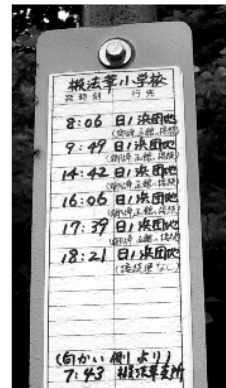 椴法華小学校
発時刻 行先
8:06 日ノ浜団地
9:49 日ノ浜団地
14:42 日ノ浜団地
16:06 日ノ浜団地
17:39 日ノ浜団地
18:21 日ノ浜団地
(接続便なし)
(向かい側より)
7:43 椴法華支所